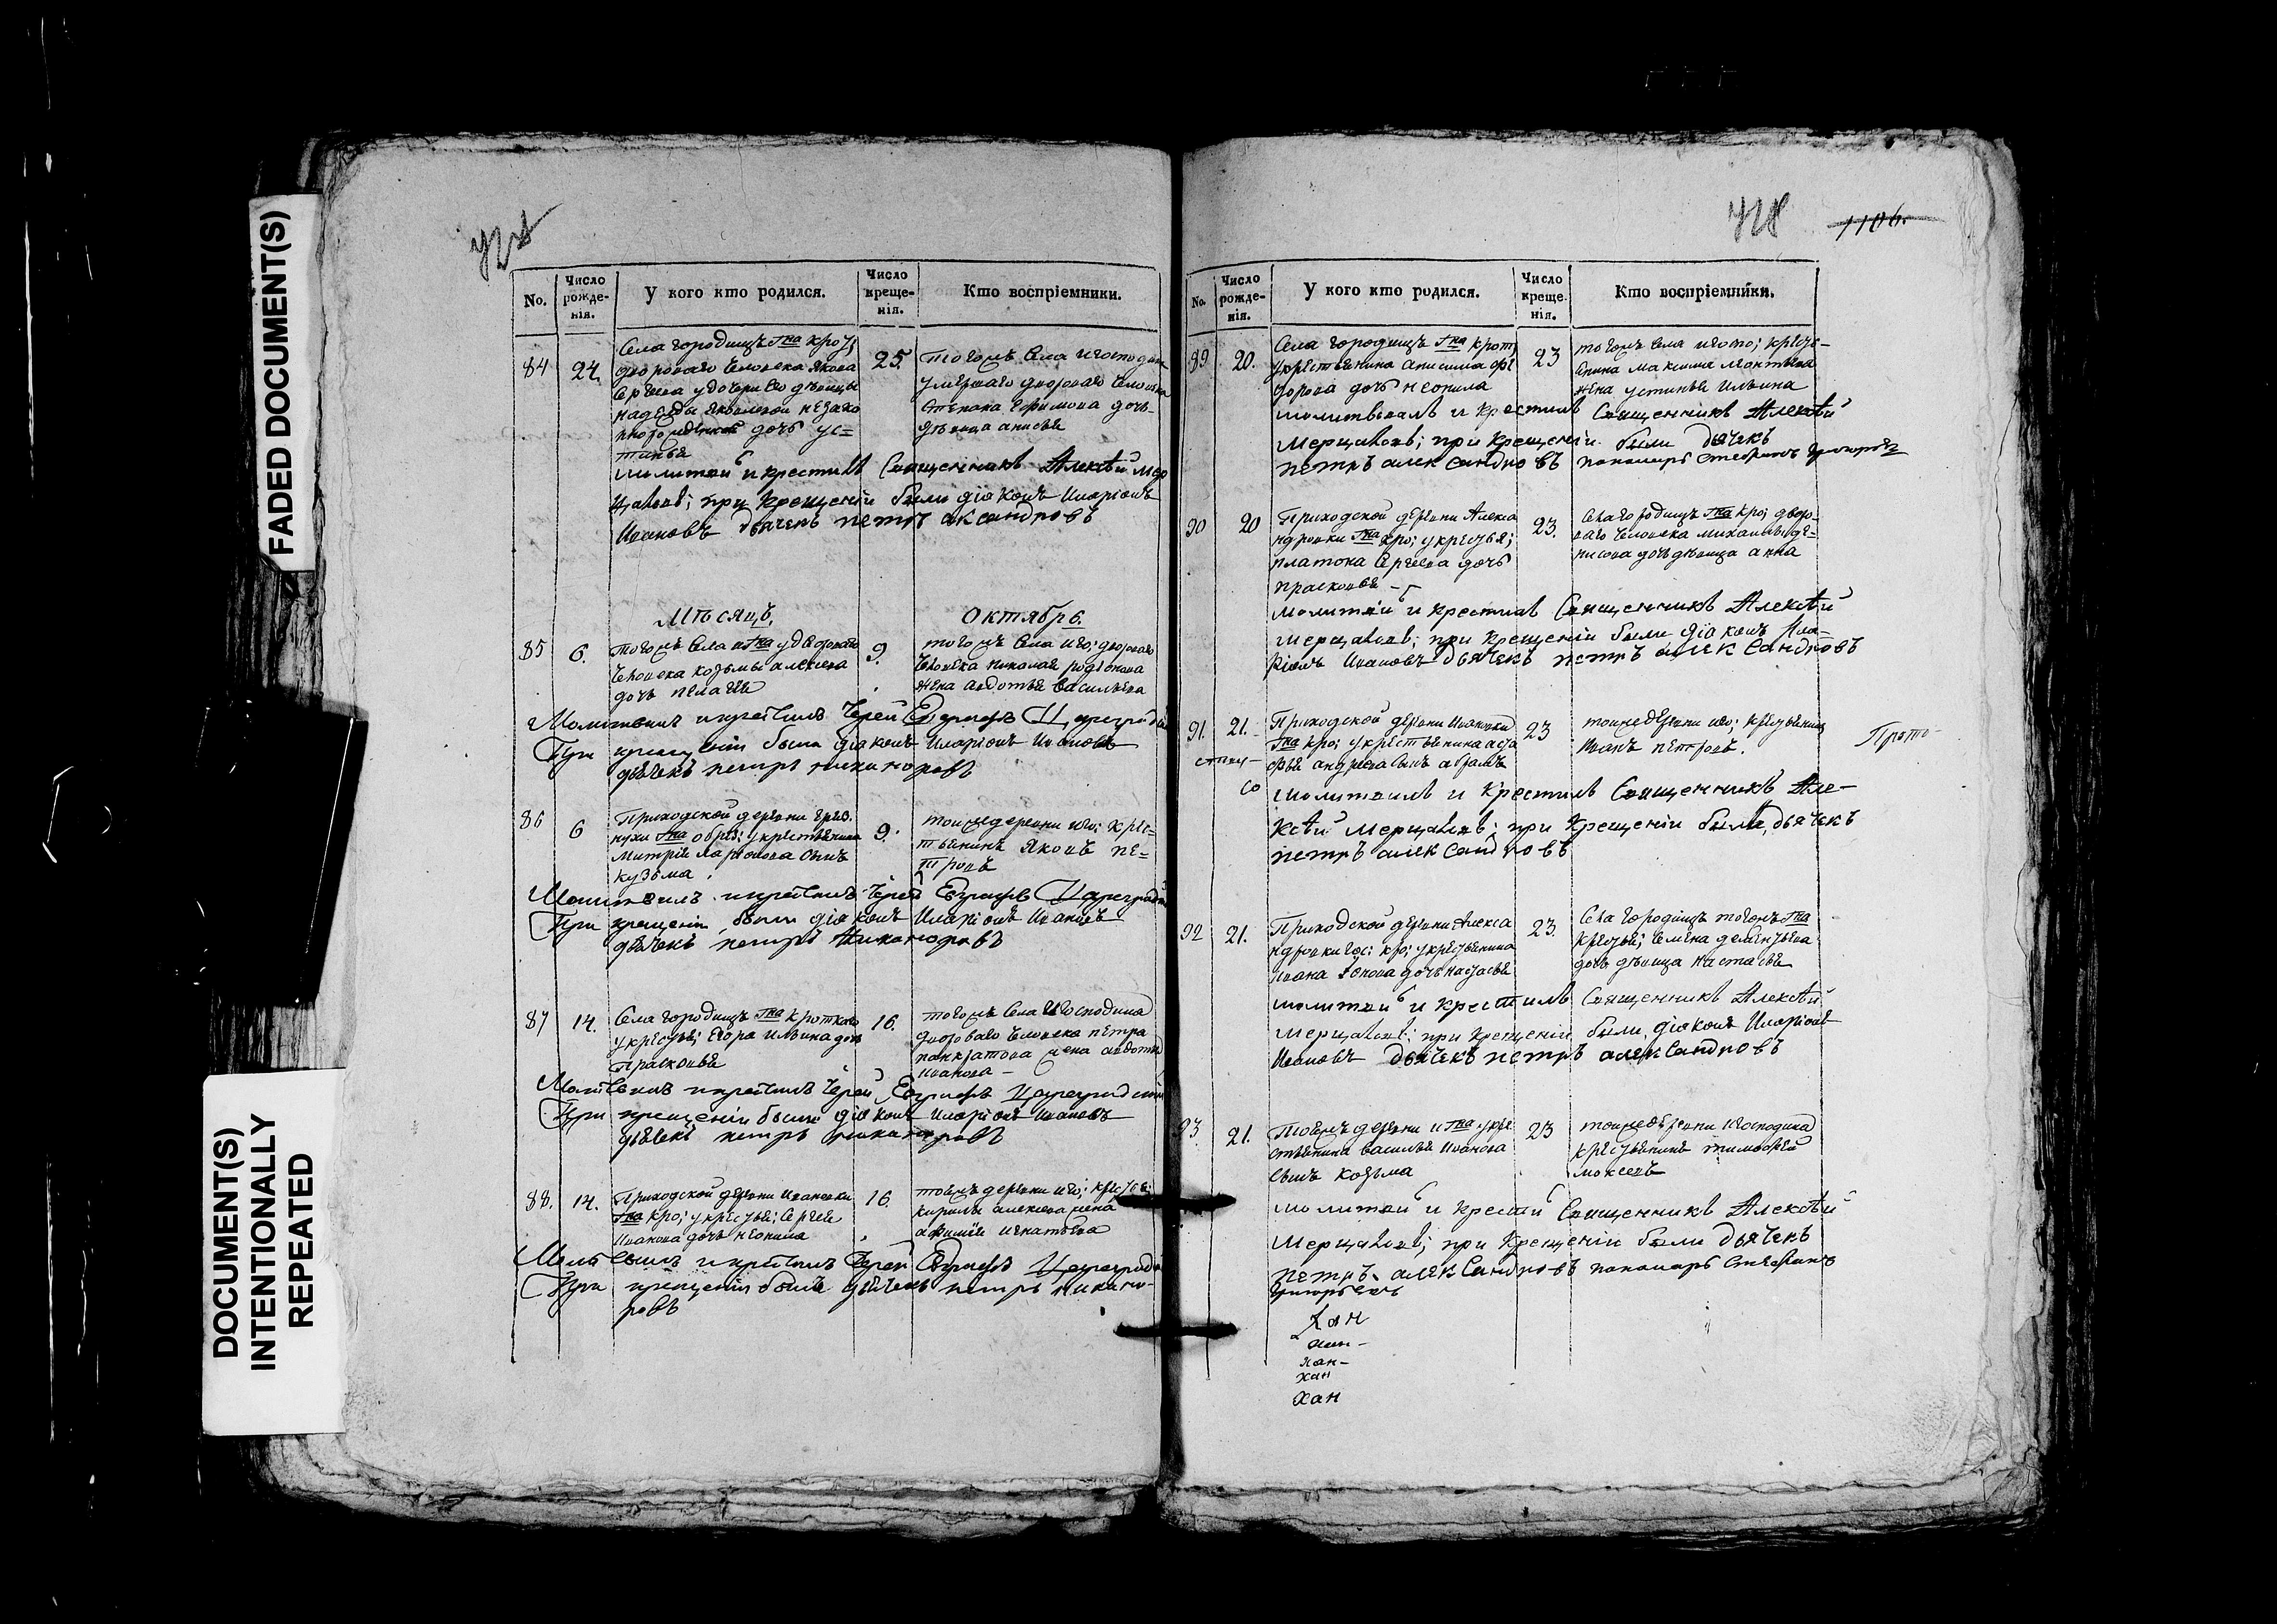 FADED DOCUMENT(S)
DOCUMENT(S)
INTENTIONALLY
REPEATED
No.
Число рожде-нія.
У кого кто родился.
Число креще-нія.
Кто воспріемники.
84
24.
Села городищъ гна крот;
двороваго человека Якова
Сергеева у дочери его девицы
надежды Яковлевой незако
дочь ус=
тинья
25.
тогожъ села
умершаго двороваго человека
Степана Ефимова дочь
девица анисья
молитвой и крестилъ Священникъ Алексѣй Мер
цаловъ; при крещеніи были діаконъ Иларіонъ
Ивановъ дьячекъ петръ александровъ
Мѣсяцъ Октябрь.
85
6.
тогожъ села и гна у двороваго
человека козьмы алексеева
дочь пелагея
9.
тогожъ села его; двороваго
человека николая родіонова
жена авдотья васильева
Молитвилъ и крестилъ Іерей Евграфъ Цареградс
При крещеніи были діаконъ Иларіонъ Ивановъ
дьячекъ петръ никаноровъ
86
6
Приходской деревни
гна обрез; у крестьянина
Митрия Ларіонова сынъ
кузьма
9.
тоижъ деревни его; крес=
тьянинъ Яковъ пе=
тровъ
Молитвилъ и крестилъ Іерей Евграфъ Цареградс
При крещеніи были діаконъ Иларіонъ Ивановъ
дьячекъ петръ Никаноровъ
87
14.
Села городищъ гна кроткого
у крестья; Егора Ильина дочь
Прасковья
16.
тогожъ села и господина
двороваго человека петра
панкратова жена авдотья
иванова
Молитвилъ и крестилъ Іерей Евграфъ Цареградскій
При крещеніи были діаконъ Иларіонъ Ивановъ
дьячекъ петръ никаноровъ
88.
14.
Приходской деревни Ивановки
гна кро; у крестья; Сергея
Иванова дочь неонила
16.
тоижъ деревни его; крестья;
кирилы алексеева жена
афимия игнатьева
Молитвилъ и крестилъ Іерей Евграфъ Цареградс
При крещеніи былъ дьячекъ петръ никано-
ровъ
428
1106.
No.
Число рожде-нія.
У кого кто родился.
Число креще-нія.
Кто воспріемники.
89
20.
Села городищъ гна крот;
у крестьянина анисима фе
дорова дочь неонила
23
тогожъ села его; кресть-
янина максима
жена устинья Ильина
молитвовалъ и крестилъ Священникъ Алексѣй
Мерцаловъ; при крещеніи были дьячекъ
петръ александровъ пономарь стефанъ григорьевъ
90
20
Приходской деревни Алекса
ндровки гна кро; у крестья;
платона Сергеева дочь
прасковья
23.
Села городищъ гна кро; дворо-
ваго человека михаилы де=
нисова дочь девица анна
молитвой и крестилъ Священникъ Алексѣй
Мерцаловъ; при крещеніи были діаконъ Ила-
ріонъ Ивановъ дьячекъ петръ александровъ
91.
21.
Приходской деревни Ивановки
гна кро; у крестьянина
андреева сынъ абрамъ
23
тоижъ деревни его; крестьянинъ
Иванъ петровъ.
Прото-
со
молитвилъ и крестилъ Священникъ Але-
ксѣй Мерцаловъ; при крещеніи были дьячекъ
петръ александровъ
92
21.
Приходской деревни Алекса
ндровки гос; кро; у крестьянина
Ивана дочь настасья
23.
Села городищъ тогожъ гна
крестья; Семена дементьева
дочь девица настасья
молитвой и крестилъ Священникъ Алексѣй
Мерцаловъ; при крещеніи были діаконъ Иларіонъ
Ивановъ дьячекъ петръ александровъ
93
21.
Тоижъ деревни и гна у кре
стьянина василья Иванова
сынъ козьма
23
тоижъ деревни и господина
крестьянинъ тимофей
моисеевъ
молитвой и крестилъ Священникъ Алексѣй
Мерцаловъ; при крещеніи были дьячекъ
петръ александровъ пономарь Стефанъ
Григорьевъ
хан
хан